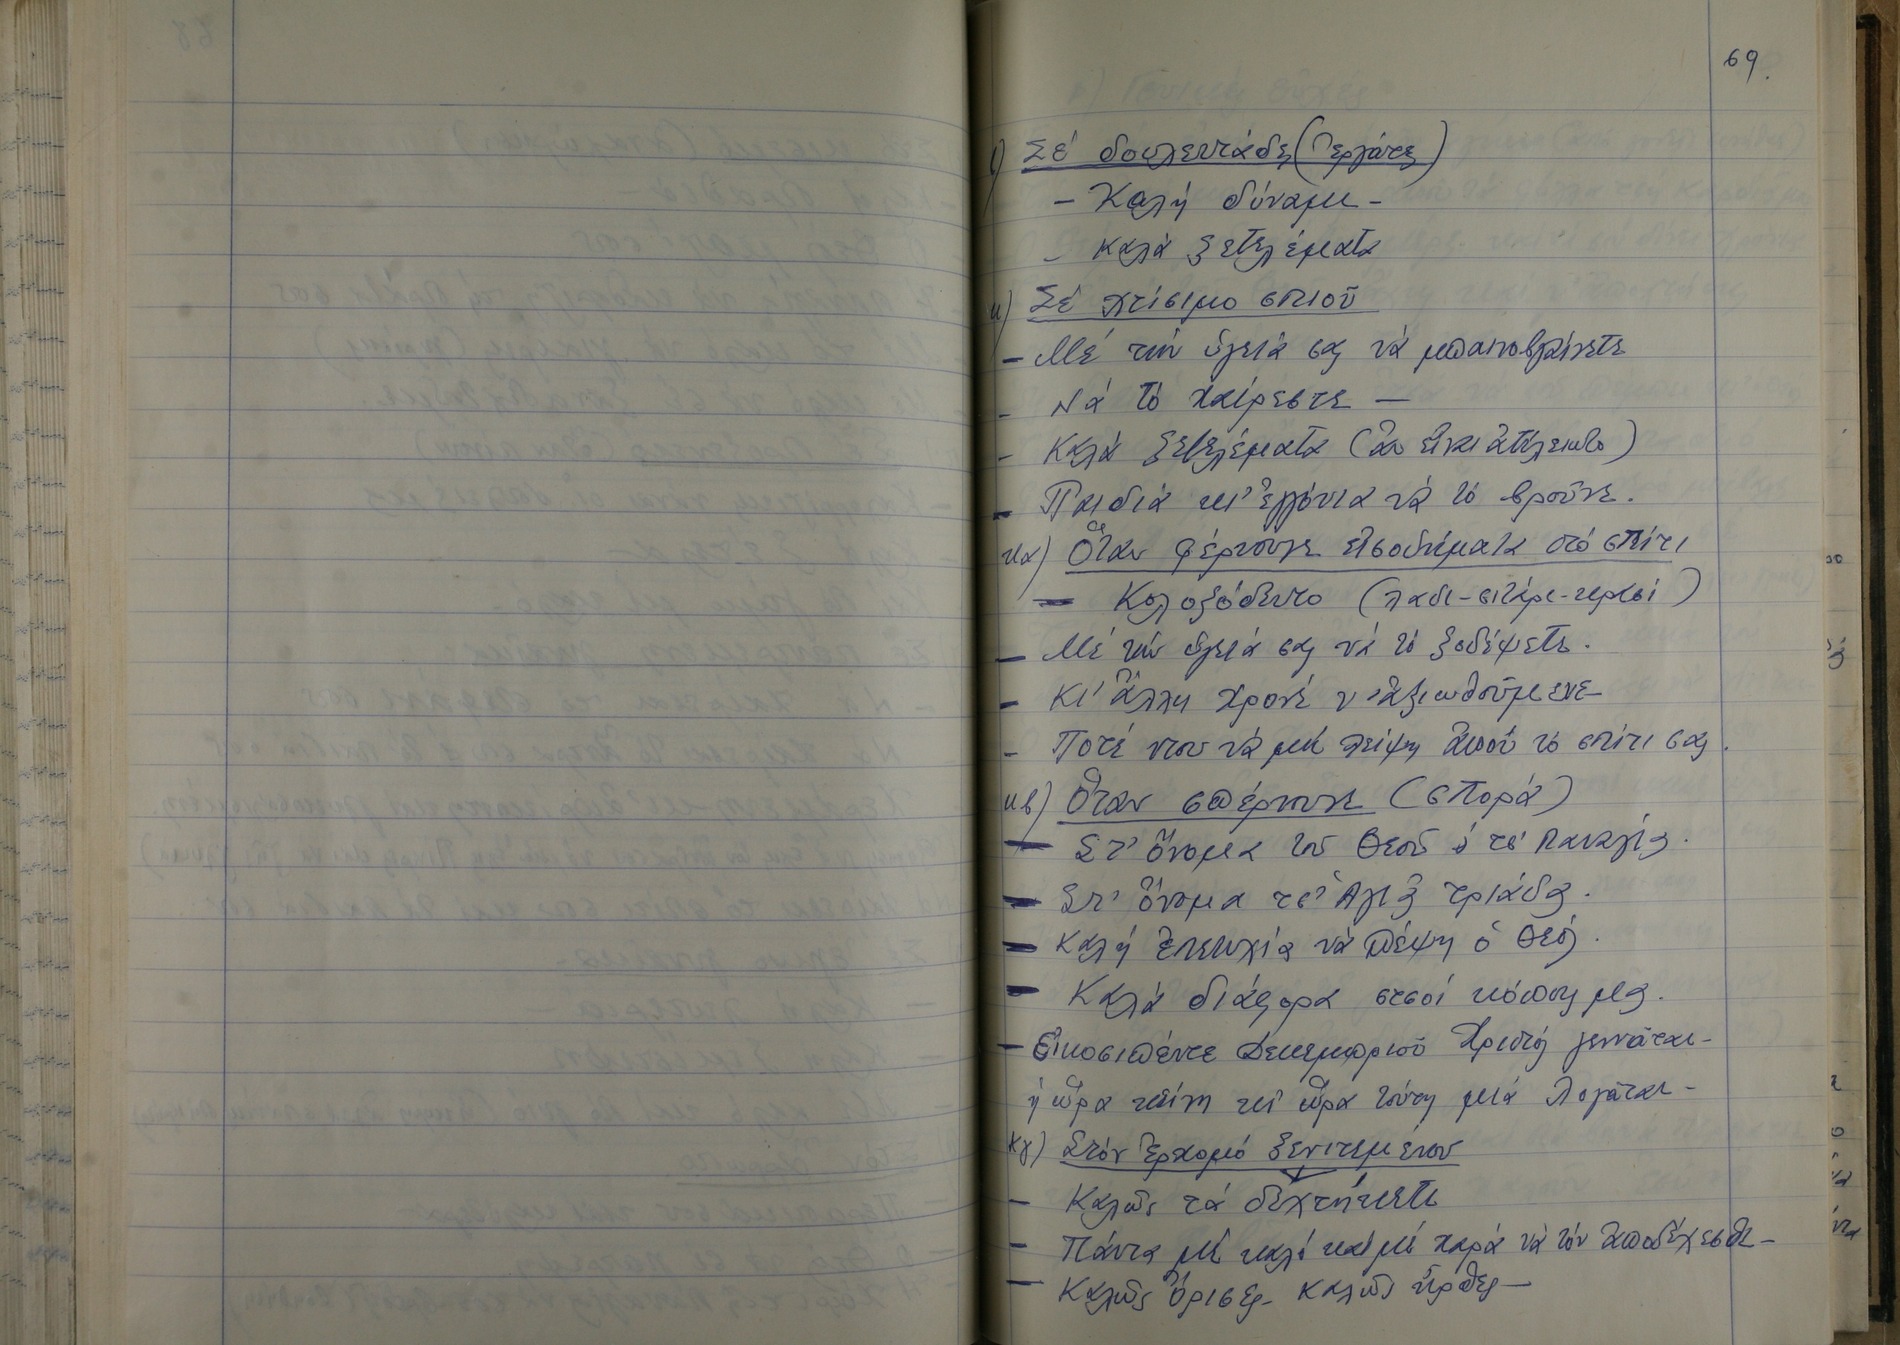 69.
ι) Σέ δουλευτάδες (Ἐργάτες)
- Καλή δύναμι -
- καλά ξετελέματα
κ) Σέ χτίσιμο σπιοῦ
- Μέ τήν ὑγειά σας νά μπαινοβγαίνετε
- Νά τό χαίρεστε -
- Καλά ξετελέματα (ἄν εἶναι ἀτέλειωτο)
- Παιδιά κι' ἐγγόνια νά τό βροῦνε.
κα) Ὅταν φέρνουνε εἰσοδήματα στό σπίτι
- Καλοξόδευτο (λάδι-σιτάρι-κρασί)
- Μέ τήν ὑγειά σας νά τό ξοδέψετε.
- Κι' ἄλλη χρονιά ν' ἀξιωθοῦμενε
- Ποτέ ντου νά μή λείψη ἀπού τό σπίτι σας.
κβ) Ὅταν σπέρνουνε (σπορά)
- Στ' ὄνομα τοῦ Θεοῦ & τσῆ Παναγίας.
- Στ' ὄνομα τσ' Ἁγιᾶς τριάδας.
- Καλή ἐπιτυχία νά πέψη ὁ Θεός.
- Καλά διάφορα στσοί κόπους μας.
- Εἰκοσιπέντε Δεκεμβριοῦ Χριστός γεννᾶται -
ἡ ὥρα κείνη κι' ὥρα τούτη μιά λογᾶται -
κγ) Στόν ἐρχομό ξενιτεμένου
- Καλῶς τά δεχτήκετε
- Πάντα μέ καλό καί μέ χαρά νά τόν ἀποδέχεσθε -
- Καλῶς ὅρισες - καλῶς ἦρθες -